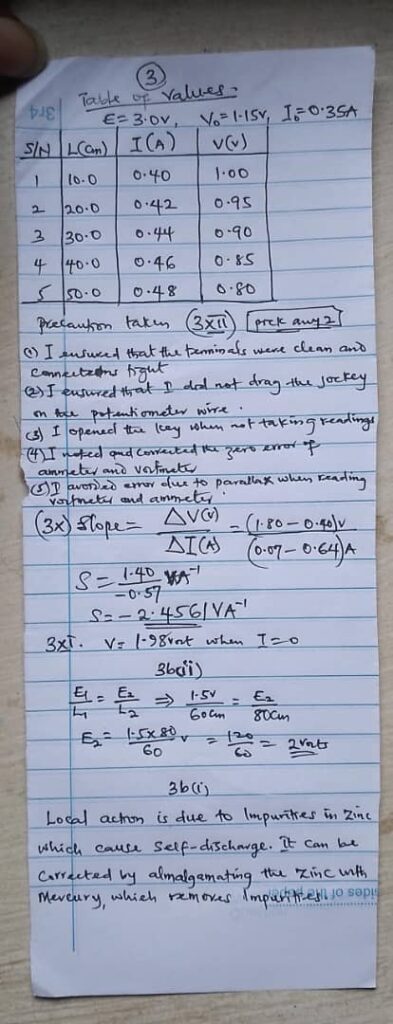 3
Table of Values.
E = 3.0V, V₀ = 1.15V, I₀ = 0.35A
S/N L(cm) I(A) V(V)
1 10.0 0.40 1.00
2 20.0 0.42 0.95
3 30.0 0.44 0.90
4 40.0 0.46 0.85
5 50.0 0.48 0.80
precaution taken (3xii) pick any 2
(1) I ensured that the terminals were clean and
connections tight
(2) I ensured that I did not drag the jockey
on the potentiometer wire.
(3) I opened the key when not taking readings
(4) I noted and corrected the zero error of
ammeter and voltmeter
(5) I avoided error due to parallax when reading
voltmeter and ammeter.
(3x) Slope = ΔV(V) / ΔI(A) = (1.80 - 0.40)V / (0.07 - 0.64)A
S = 1.40 / -0.57 VA⁻¹
S = -2.4561 VA⁻¹
3xi. V = 1.98volt when I = 0
3b(ii)
E₁/L₁ = E₂/L₂ ⇒ 1.5V/60cm = E₂/80cm
E₂ = 1.5x80/60 V = 120/60 = 2volts
3b(i)
Local action is due to Impurities in Zinc
which cause self-discharge. It can be
corrected by almalgamating the zinc with
Mercury, which removes Impurities.